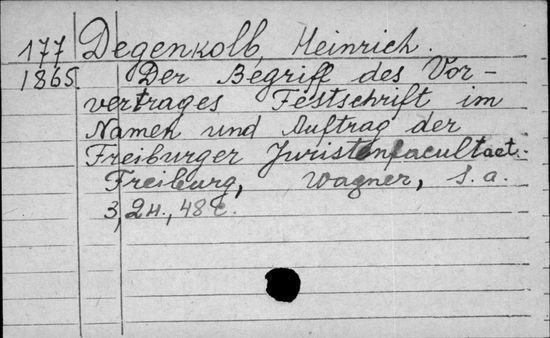 177 Degenkolb, Heinrich.
1865 Der Begriff des Vor-
vertrages Festschrift im
Namen und Auftrag der
Freiburger Juristenfacultaet.
Freiburg, Wagner, s.a.
3, 2н., 48 с.